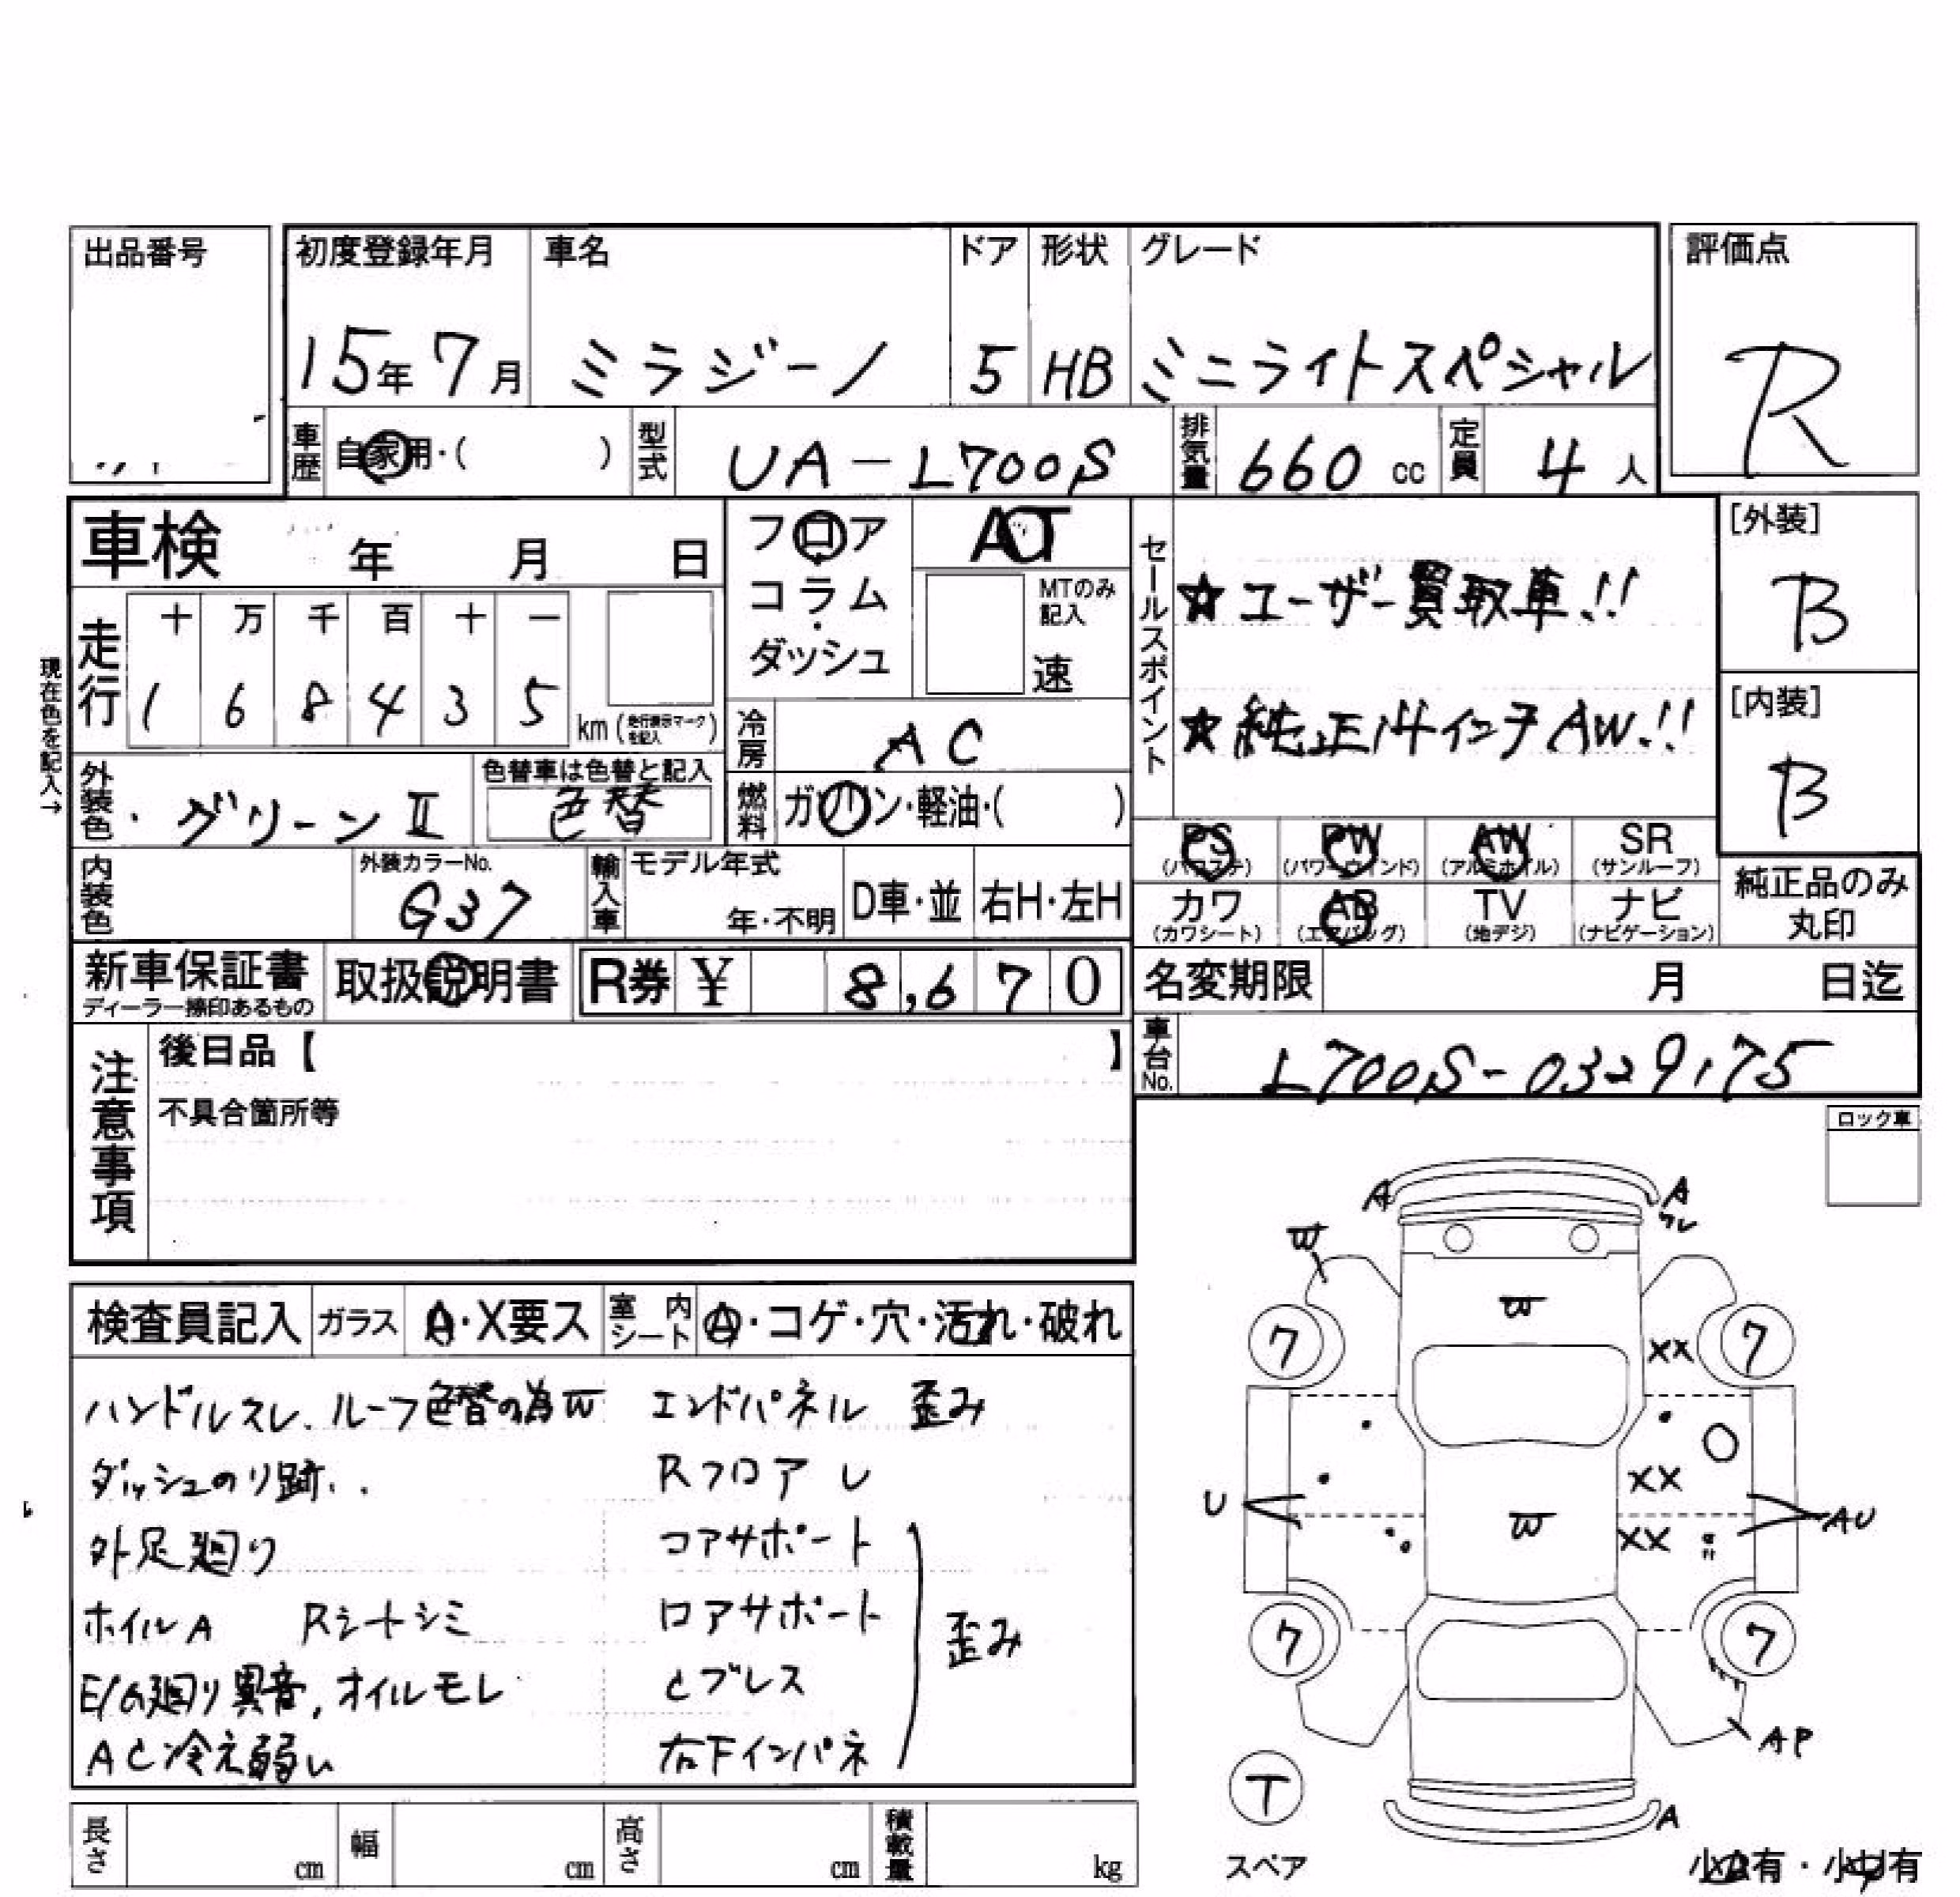 出品番号
初度登録年月 車名 ドア 形状 グレード 評価点
15年7月 ミラジーノ 5 HB ミニライトスペシャル R
車歴 自家用・( ) 型式 UA-L700S 排気量 660 cc 定員 4人
車検 年 月 日
フロア コラム ダッシュ
AT
MTのみ記入
速
セールスポイント
☆ユーザー買取車!!
☆純正14インチAW!!
[外装]
B
[内装]
B
現在色を記入→
走行 十 万 千 百 十 一
1 6 8 4 3 5 km (走行表示マークを記入)
冷房 AC
外装色・グリーンII 色替車は色替と記入
色替
燃料 ガソリン・軽油・( )
PS (パワステ) PW (パワーウィンド) AW (アルミホイル) SR (サンルーフ)
カワ (カワシート) AB (エアバッグ) TV (地デジ) ナビ (ナビゲーション)
純正品のみ丸印
内装色 外装カラーNo.
G37
輸入車 モデル年式
年・不明 D車・並 右H・左H
新車保証書 取扱説明書 R券 ¥ 8,670
ディーラー捺印あるもの
名変期限 月 日迄
車台No. L700S-0329175
注意事項
後日品【 】
不具合箇所等
ロック車
検査員記入 ガラス A・X要ス 室内シート A・コゲ・穴・汚れ・破れ
ハンドルスレ.ルーフ色替の為W エンドパネル 歪み
ダッシュのり跡.. Rフロア レ
外足廻り コアサポート
ホイルA Rシートシミ ロアサポート 歪み
E/G廻り異音,オイルモレ とブレス
AC冷え弱い 右下インパネ
A A
ワレ
W
W
7 XX 7
XX
U W XX AU
7 7
AP
T
A
スペア
長さ cm 幅 cm 高さ cm 積載量 kg